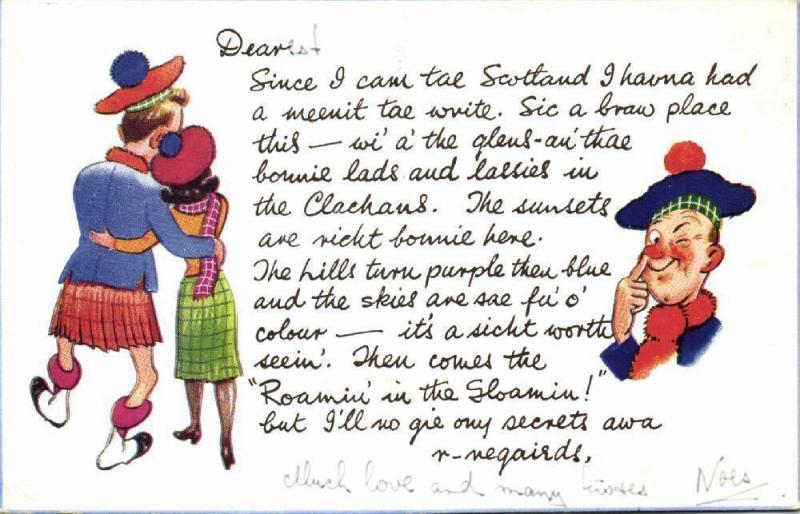 Dearest
Since I cam tae Scotland I havna had
a meenit tae write. Sic a braw place
this — wi' a' the glens-an' thae
bonnie lads and lassies in
the Clachans. The sunsets
are richt bonnie here.
The hills turn purple then blue
and the skies are sae fu' o'
colour — it's a sicht worth
seein'. Then comes the
"Roamin' in the Gloamin!"
but I'll no gie ony secrets awa
r-regairds,
Much love and many kisses